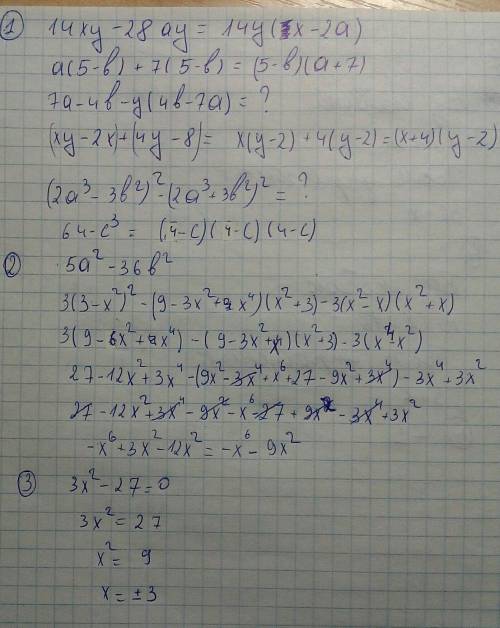 ① 14xy - 28ay = 14y(x - 2a)
a(5-в) + 7(5-в) = (5-в)(a+7)
7a - 4в - y(4в - 7a) = ?
(xy - 2x) + (4y - 8) = x(y-2) + 4(y-2) = (x+4)(y-2)
(2a³ - 3в²)² - (2a³ + 3в²)² = ?
64 - c³ = (4-c)(4-c)(4-c)
② 5a² - 36в²
3(3-x²)² - (9 - 3x² + x⁴)(x² + 3) - 3(x² - x)(x² + x)
3(9 - 6x² + x⁴) - (9 - 3x² + x⁴)(x² + 3) - 3(x⁴ - x²)
27 - 12x² + 3x⁴ - (9x² - 3x⁴ + x⁶ + 27 - 9x² + 3x⁴) - 3x⁴ + 3x²
27 - 12x² + 3x⁴ - 9x² - x⁶ - 27 + 9x² - 3x⁴ + 3x²
-x⁶ + 3x² - 12x² = -x⁶ - 9x²
③ 3x² - 27 = 0
3x² = 27
x² = 9
x = ±3